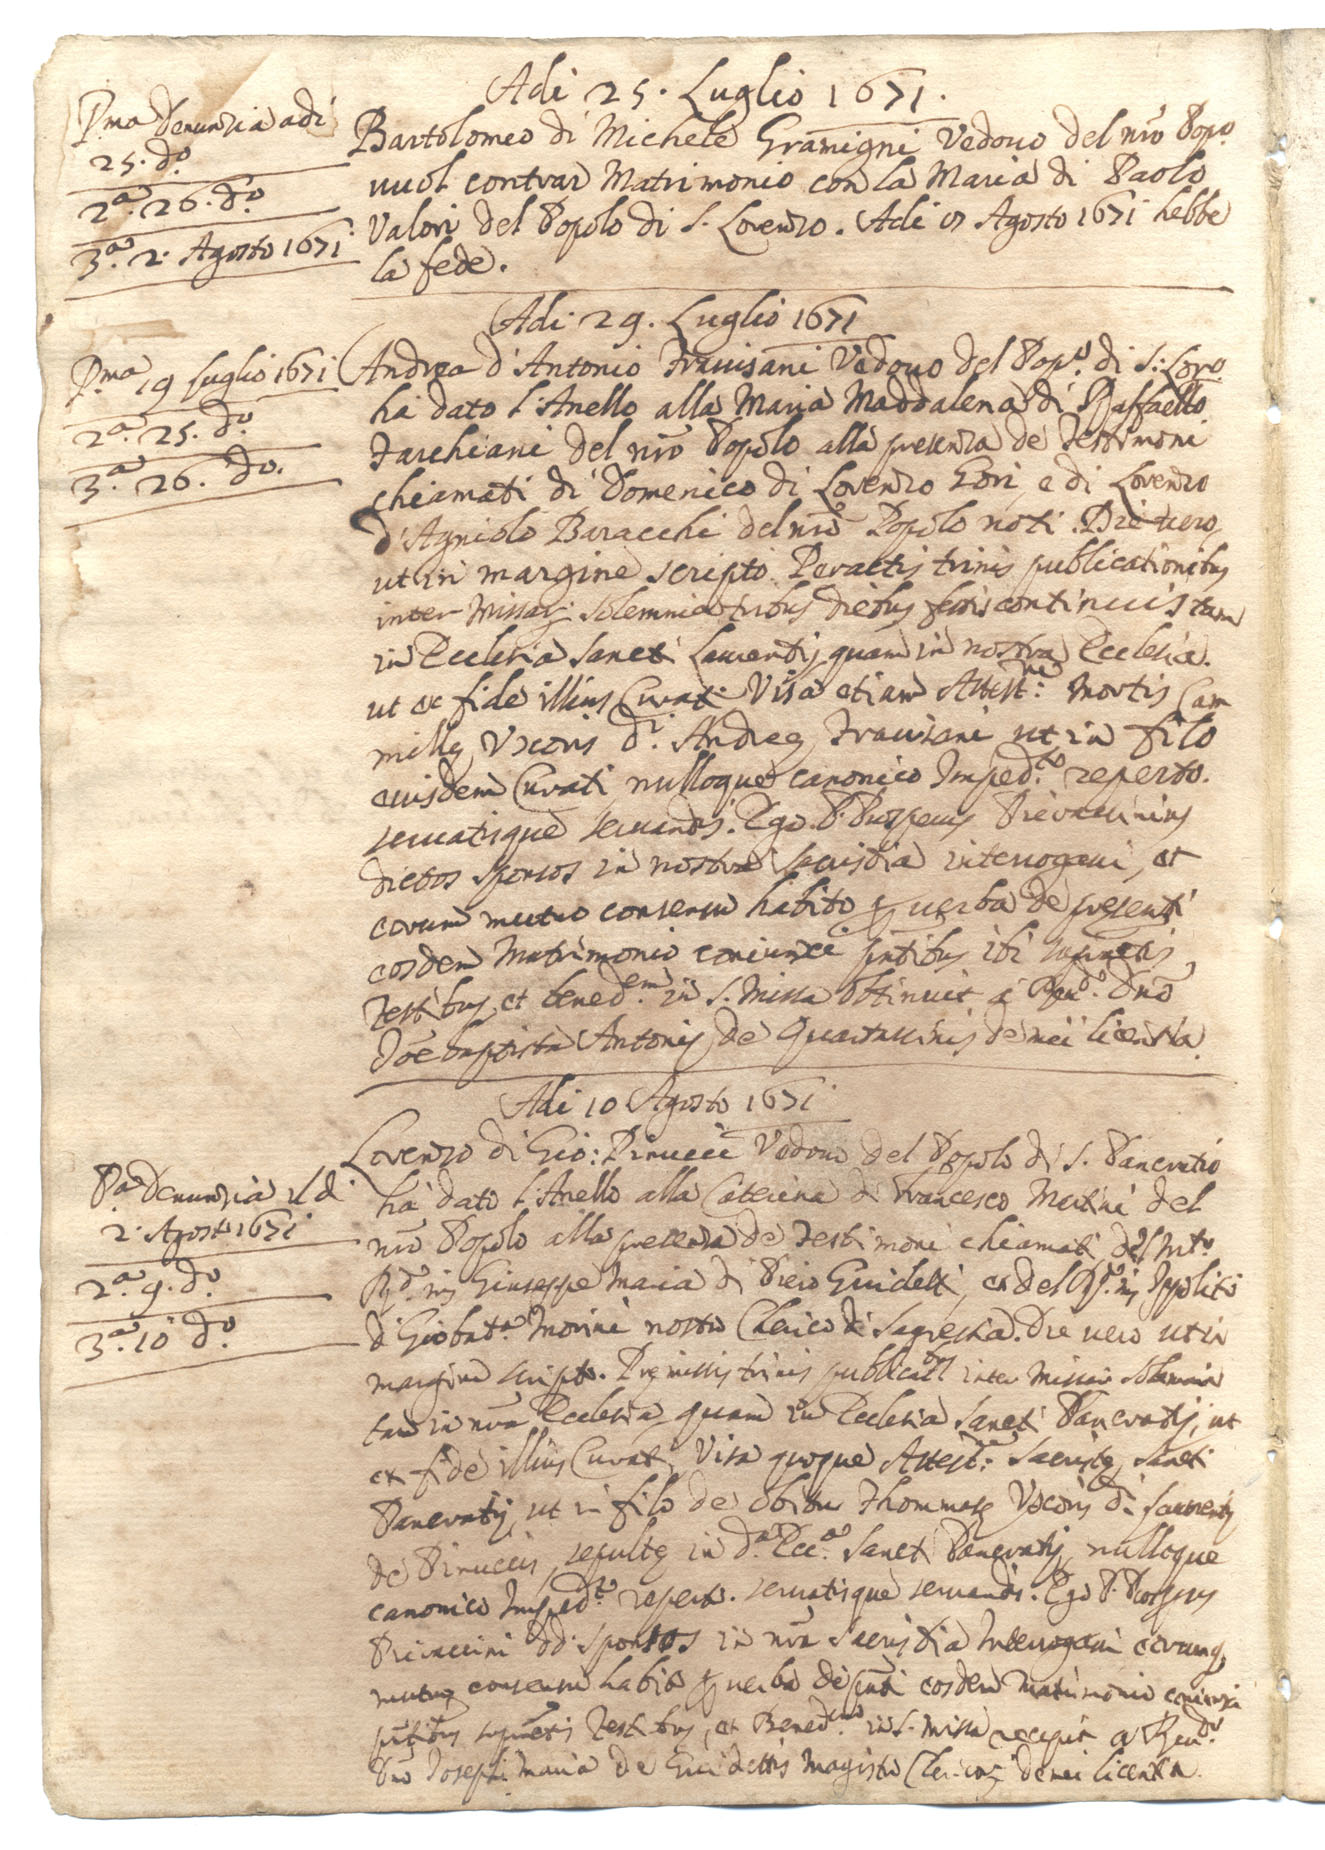 Adi 25. Luglio 1671.
Pma Denunzia adi
25. do
2a. 26. do
3a. 2. Agosto 1671
Bartolomeo di Michele Gramigni Vedouo del nro Popo
uuol contrar Matrimonio con la Maria di Paolo
Valori del Popolo di S. Lorenzo. Adi Agosto 1671 hebbe
la fede.
Adi 29. Luglio 1671
Pma 19 luglio 1671
2a. 25. do
3a. 26. do.
Andrea d'Antonio Trauisani Vedouo del Popo. di S: Loro
ha dato l'Anello alla Maria Maddalena di Raffaello
Tarchiani del nro Popolo alla presenza de Testimoni
chiamati di Domenico di Lorenzo Gori, e di Lorenzo
d'Agniolo Baracchi del nro Popolo noti. Die uero,
ut in margine scripto. Peractis trinis publicationibus
inter Missar: solemnia tribus diebus festis continuis tam
in Ecclesia Sancti Laurentij quam in nostra Ecclesia.
ut ex fide illius Curati Visa etiam Attestne: mortis Cam
millę Vxoris di. Andreę Trauisani ut in filo
eiusdem Curati nulloque canonico Imped.to reperto.
seruatisque seruandis. Ego P. Prosperus Pievaccinius
dictos sponsos in nostra sacristia interrogaui, et
eorum mutuo consensu habito p uerba de presenti
eosdem Matrimonio coniunxi pntibus ibi suprictis
Testibus, et bened.em in S. Missa obtinuit a Reud.o Dno
Joe baptista Antonij de Quaratesinis de mei licentia
Adi 10 Agosto 1671
Pa Denunzia il d
2. Agosto 1671
2a. 9. do.
3a. 10 do.
Lorenzo di Gio: Pinucci Vedouo del Popolo di S. Pancratio
ha dato l'Anello alla Caterina di Francesco Martini del
nro Popolo alla presenza de Testimoni chiamati del
Giuseppe Maria di Piero Guidetti, et del Ippolito
di Giobata. Morini nostro Cherico di Sagrestia. Die uero ut in
margine scripto. Pręmissis trinis publicatis inter Missar solemnia
tam in nra Ecclesia, quam in Ecclesia Sancti Pancratij, ut
ex fide illius Curati, Visa quoque Attestne: Sacristę Sancti
Pancratij ut in filo de obitu Thommasę Vxoris di. Laurentij
de Pinuccis, sepultę in da. Eccа. Sancti Pancratij, nulloque
canonico Imped.to reperto. seruatisque seruandis. Ego P. Prosperus
Pievaccini dd: sponsos in nra Sacristia Interrogaui eorumq
mutuo consensu habito p uerba de pnti eosdem matrimonio coniunxi
pntibus suprictis Testibus, et Bened.em in S. missa recepit a Reud.o
Dno Joseph Maria de Guidettis magistro Clericor. de mei licentia.